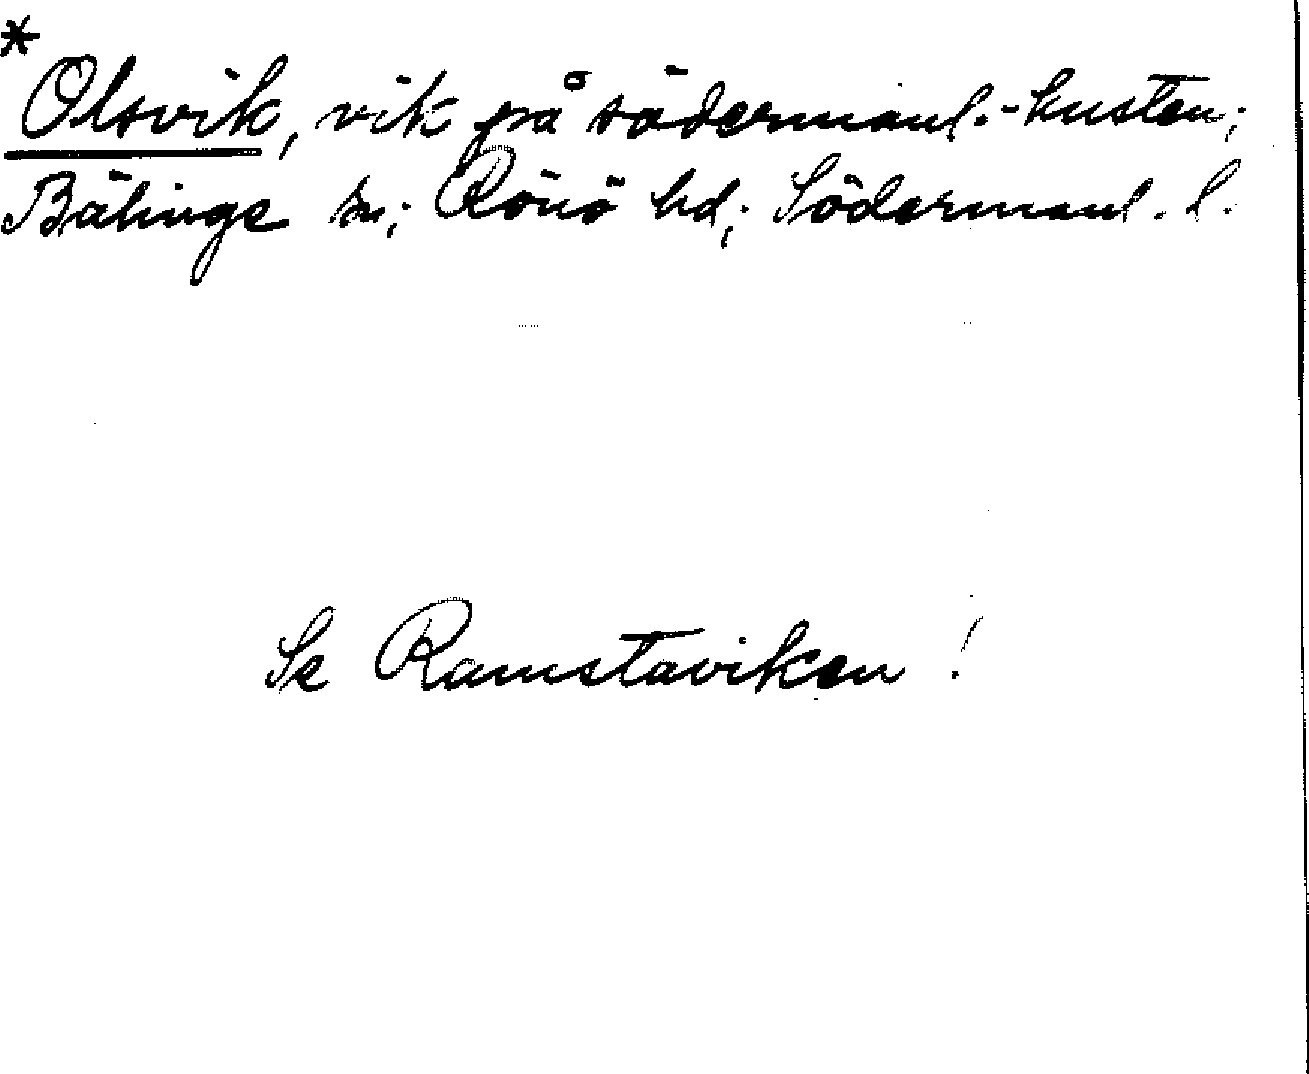 *
Olsvik, vik på södermanl.-kusten;
Bälinge sn; Rönö hd; Södermanl. l.
Se Ramstaviken!